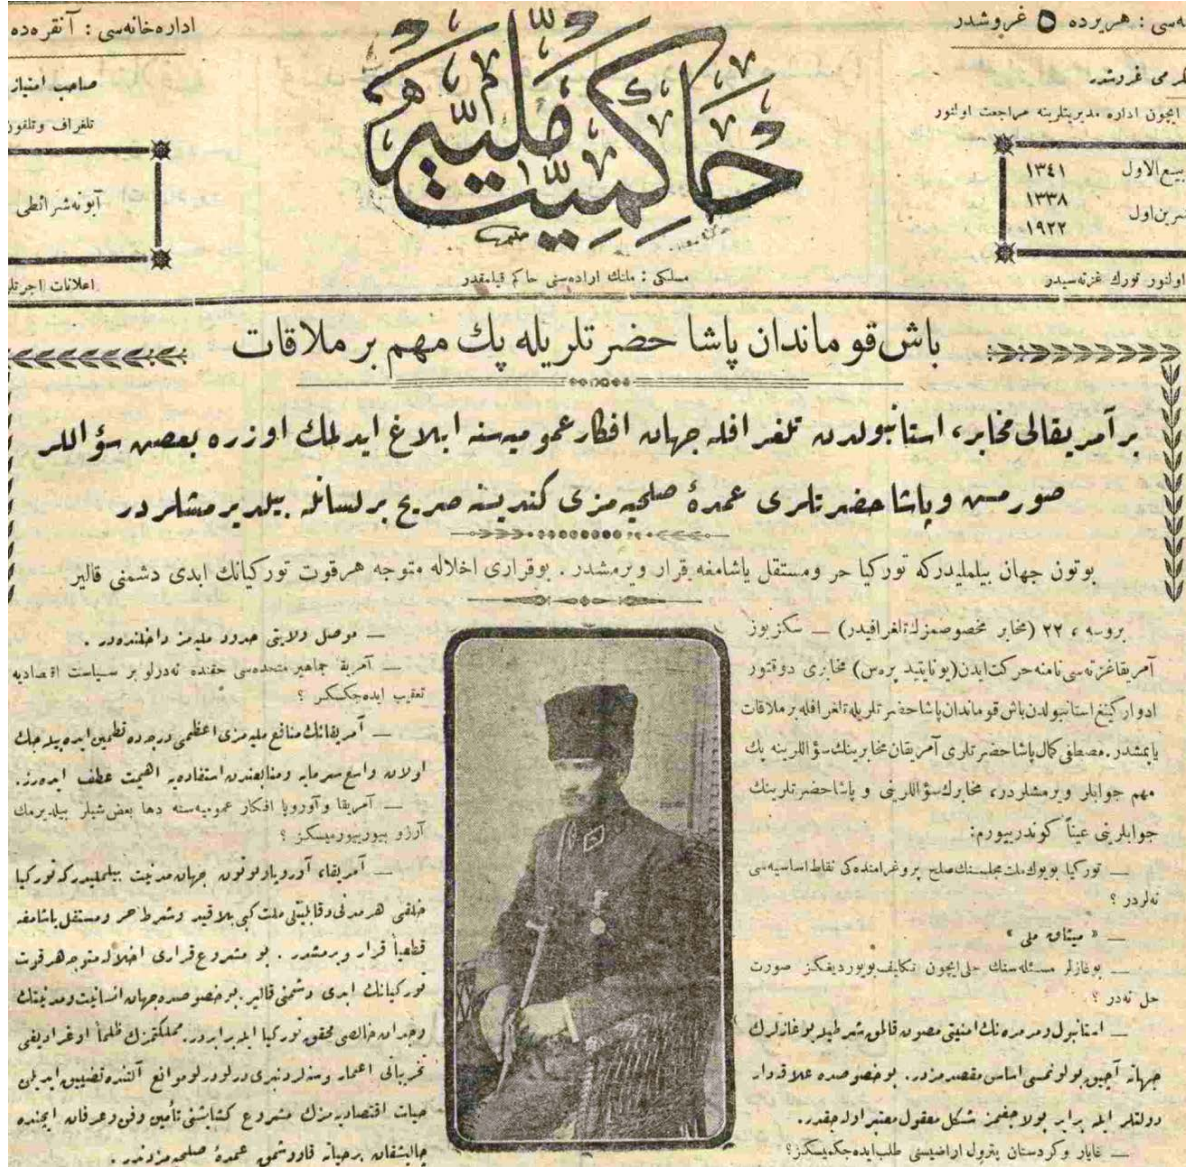 اداره‌خانه‌سی : آنقره‌ده
صاحب امتیاز
تلغراف وتلفون
آبونه شرائطی
اعلانات
حاكمیت ملیه
هریرده ٥ غروشدر
غروشدر
ایچون اداره مدیریتلرینه مراجعت اولنور
ربیع‌الاول ١٣٤١
تشرین اول ١٣٣٨
١٩٢٢
اولنور تورك غزته‌سیدر
مسلكی : ملتك اراده‌سنی حاكم قیلمقدر
باش قوماندان پاشا حضرتلریله پك مهم بر ملاقات
بر آمریقالی مخابر، استانبولدن تلغرافله جهان افكار عمومیه‌سنه ابلاغ ایدلمك اوزره بعض سؤاللر
صورمش وپاشا حضرتلری عمدهٔ صلحیه‌مزی كندیسنه صریح بر لسانله بیلدیرمشلردر
بوتون جهان بیلملیدركه توركیا حر ومستقل یاشامغه قرار ویرمشدر . بوقراری اخلاله متوجه هرقوت توركیانك ابدی دشمنی قالیر
بروسه ، ٢٢ (مخابر مخصوصمزك تلغرافیدر) — سكزیوز
آمریقا غزته‌سی نامنه حركت ایدن (یونایتید پره‌س) مخابری دوقتور
ادوار كینغ استانبولدن باش قوماندان پاشا حضرتلریله تلغرافله بر ملاقات
یاپمشدر. مصطفی كمال پاشا حضرتلری آمریقان مخابرینك سؤاللرینه پك
مهم جوابلر ویرمشلردر، مخابرك سؤاللرینی و پاشا حضرتلرینك
جوابلرینی عیناً كوندرییورم:
— توركیا بویوك ملت مجلسنك صلح پروغرامنده‌كی نقاط اساسیه‌سی
نه‌لردر ؟
— « میثاق ملی »
— بوغازلر مسئله‌سنك حلی ایچون تكلیف بویوردیغكز صورت
حل نه‌در ؟
— استانبول ومرمره‌نك امنیتی مصون قالمق شرطیله بوغازلرك
جهانه آچیق بولونمسی اساس مقصدمزدر. بو خصوصده علاقه‌دار
دولتلر ایله برابر بولاجغمز شكل معقول معتبر اوله‌جقدر.
— وكردستان پترول اراضیسنی طلب ایده‌جكمیسكز؟
— موصل ولایتی حدود ملیه‌مز داخلنده‌در .
— آمریقا جماهیر متحده‌سی حقنده نه‌درلو بر سیاست اقتصادیه
تعقیب ایده‌جكسكز ؟
— آمریقانك منافع ملیه‌مزی اعظمی درجه‌ده تطمین ایده‌بیله‌جك
اولان واسع سرمایه ومنابعندن استفاده‌یه اهمیت عطف ایده‌رز.
— آمریقا وآوروپا افكار عمومیه‌سنه دها بعض شیلر بیلدیرمك
آرزو بیوریورمیسكز ؟
— آمریقا، آوروپا وبوتون جهان مدنیت بیلملیدركه توركیا
خلقی هر مدنی وقابلیتلی ملت كبی بلا قید وشرط حر ومستقل یاشامغه
قطعیاً قرار ویرمشدر . بو مشروع قراری اخلاله متوجه هرقوت
توركیانك ابدی دشمنی قالیر. بو خصوصده جهان انسانیت ومدنیتك
وجدان خالصی محقق توركیا ایله برابردر. مملكتمزك ظلماً اوغرادیغی
تخریباتی اعمار وسنه‌لردنبری درلودرلو موانع آلتنده تضییق ایدیلن
حیات اقتصادیه‌مزك مشروع كشایشنی تأمین وفن وعرفان ایچنده
چالیشقان بر حیاته قاووشمق عمدهٔ صلحیه‌مزدندر .